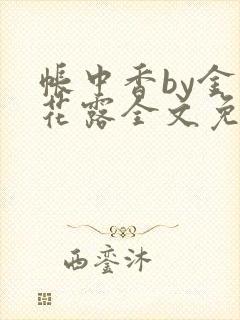 帐中香by金
花露全文免
西銮沐